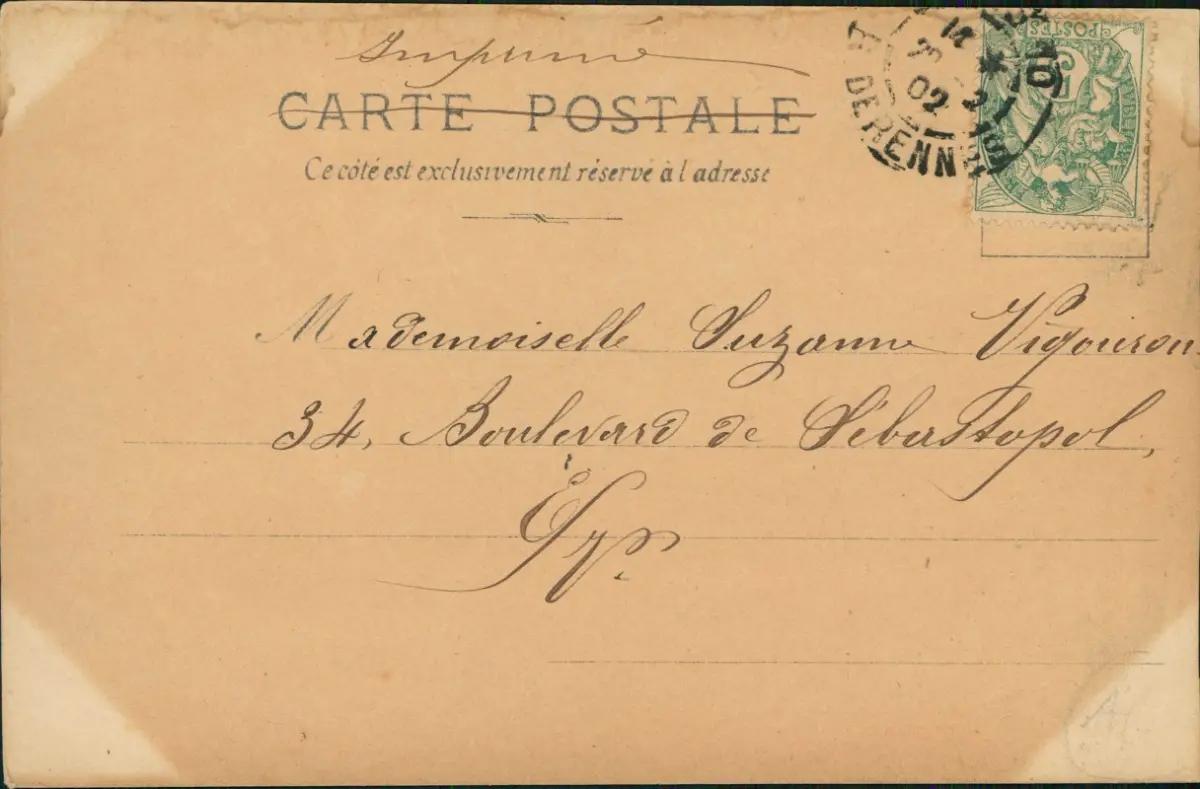 Imprimé
CARTE POSTALE
Ce côté est exclusivement réservé à l'adresse
POSTES
02
DE RENN
10
Mademoiselle Suzanne Vigourou
34, Boulevard de Sébastopol,